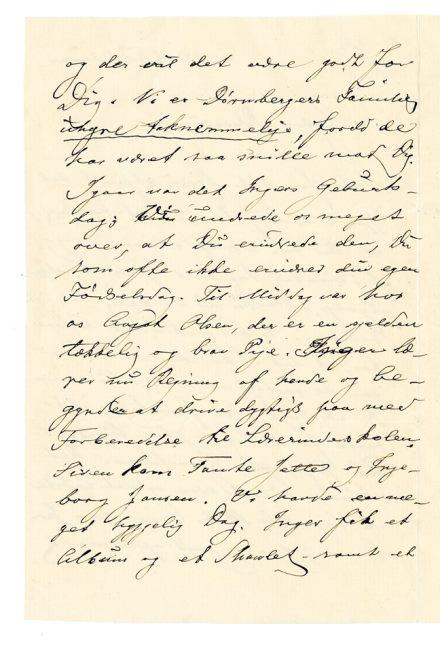 og der vil det være godt for
Dig. Vi er Dørnbergers Familie
uhyre taknemmelige, fordi de
har været saa snille mod Dig.
Igaar var det Ingers Geburts-
dag; undrede os meget
over, at Du erindrede den, Du
som ofte ikke erindrer din egen
Fødselsdag. Til Middag var hos
os Olsen, der er en sjelden
tækkelig og brav Pige. Inger læ-
rer nu Regning af hende og be-
gynder at drive dygtigt paa med
Forberedelse til Lærerindeskolen.
Siden kom Tante Jette og Inge-
borg Jansen. Vi havde en me-
get hyggelig Dag. Inger fik et
Album og et samt et